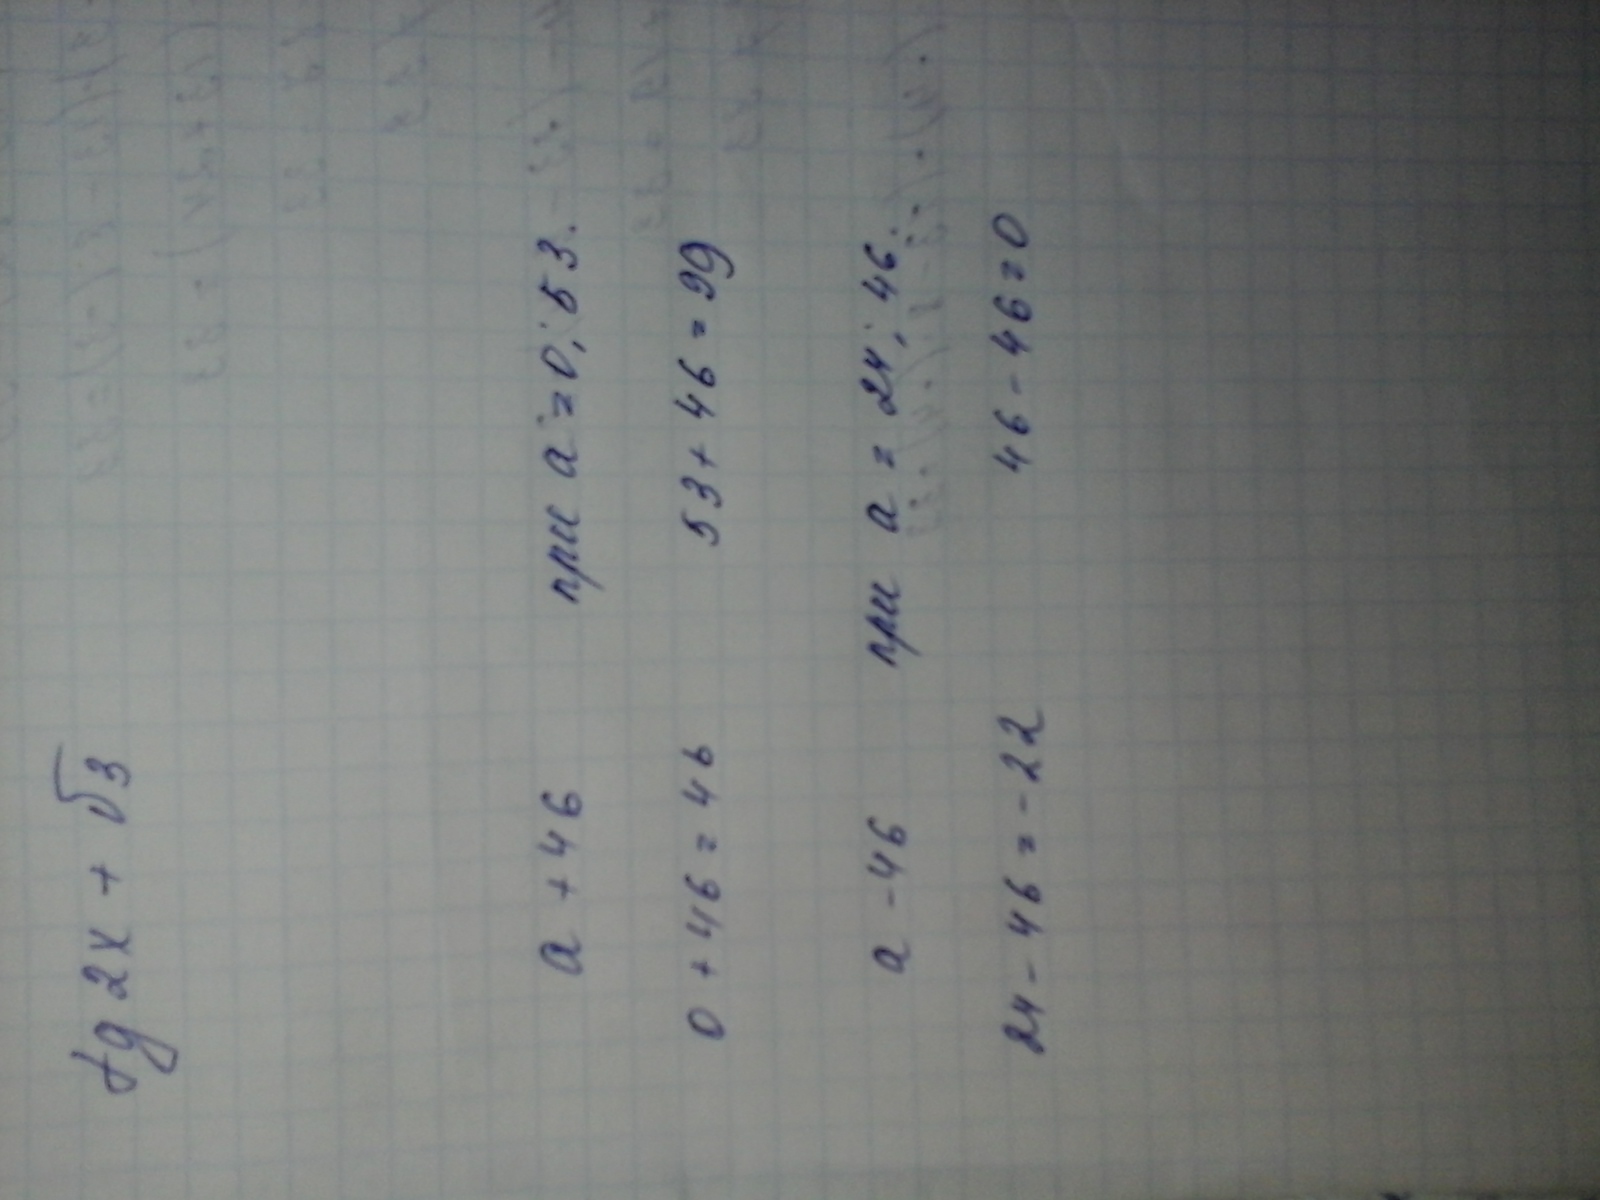 tg 2x + √3
a + 46 при a = 0; 53.
0 + 46 = 46 53 + 46 = 99
a - 46 при a = 24; 46.
24 - 46 = - 22 46 - 46 = 0